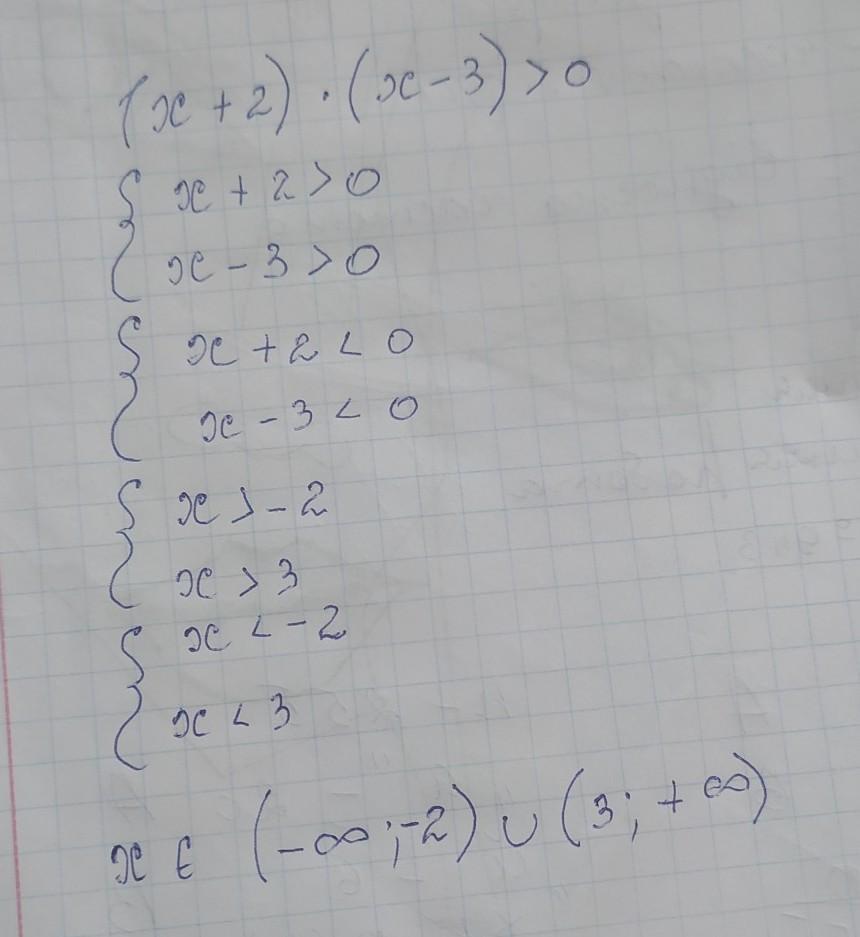 (x + 2) · (x - 3) > 0
{ x + 2 > 0
x - 3 > 0
{ x + 2 < 0
x - 3 < 0
{ x > - 2
x > 3
{ x < - 2
x < 3
x ∈ (-∞; -2) ∪ (3; +∞)